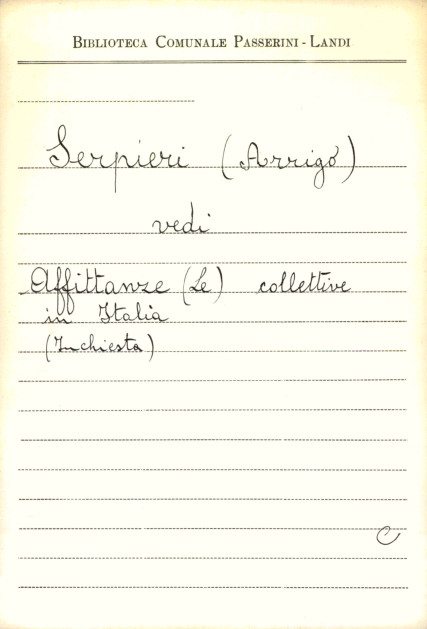 BIBLIOTECA COMUNALE PASSERINI - LANDI
Serpieri (Arrigo)
vedi
Affittanze (Le) collettive
in Italia
(Inchiesta)
C